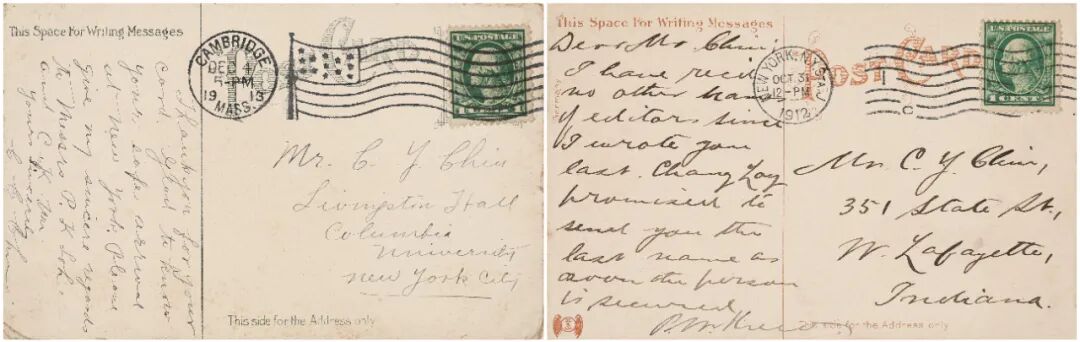 This Space For Writing Messages
CAMBRIDGE
DEC 4
5-PM
1913
MASS.
CARD
U.S. POSTAGE
Thank you for your
card. Glad to know
your safe arrival
at New York. Please
give my sincere regards
to Messrs P. K.
and C. K.
Yours sincerely
Mr. C Y Chin
Livingston Hall
Columbia
University
New York City
This side for the Address only
This Space For Writing Messages
Dear Mr Chin:
I have recd
no other
of editors since
I wrote you
last. Chang Loy
promised to
send you the
last name as
soon the person
is secured
POST CARD
NEW YORK, N.Y. STA. J
OCT 31
12-PM
1912
U.S. POSTAGE
1 CENT 1
Mr. C. Y. Chin,
351 State St.,
W. Lafayette,
Indiana.
This side for the Address only